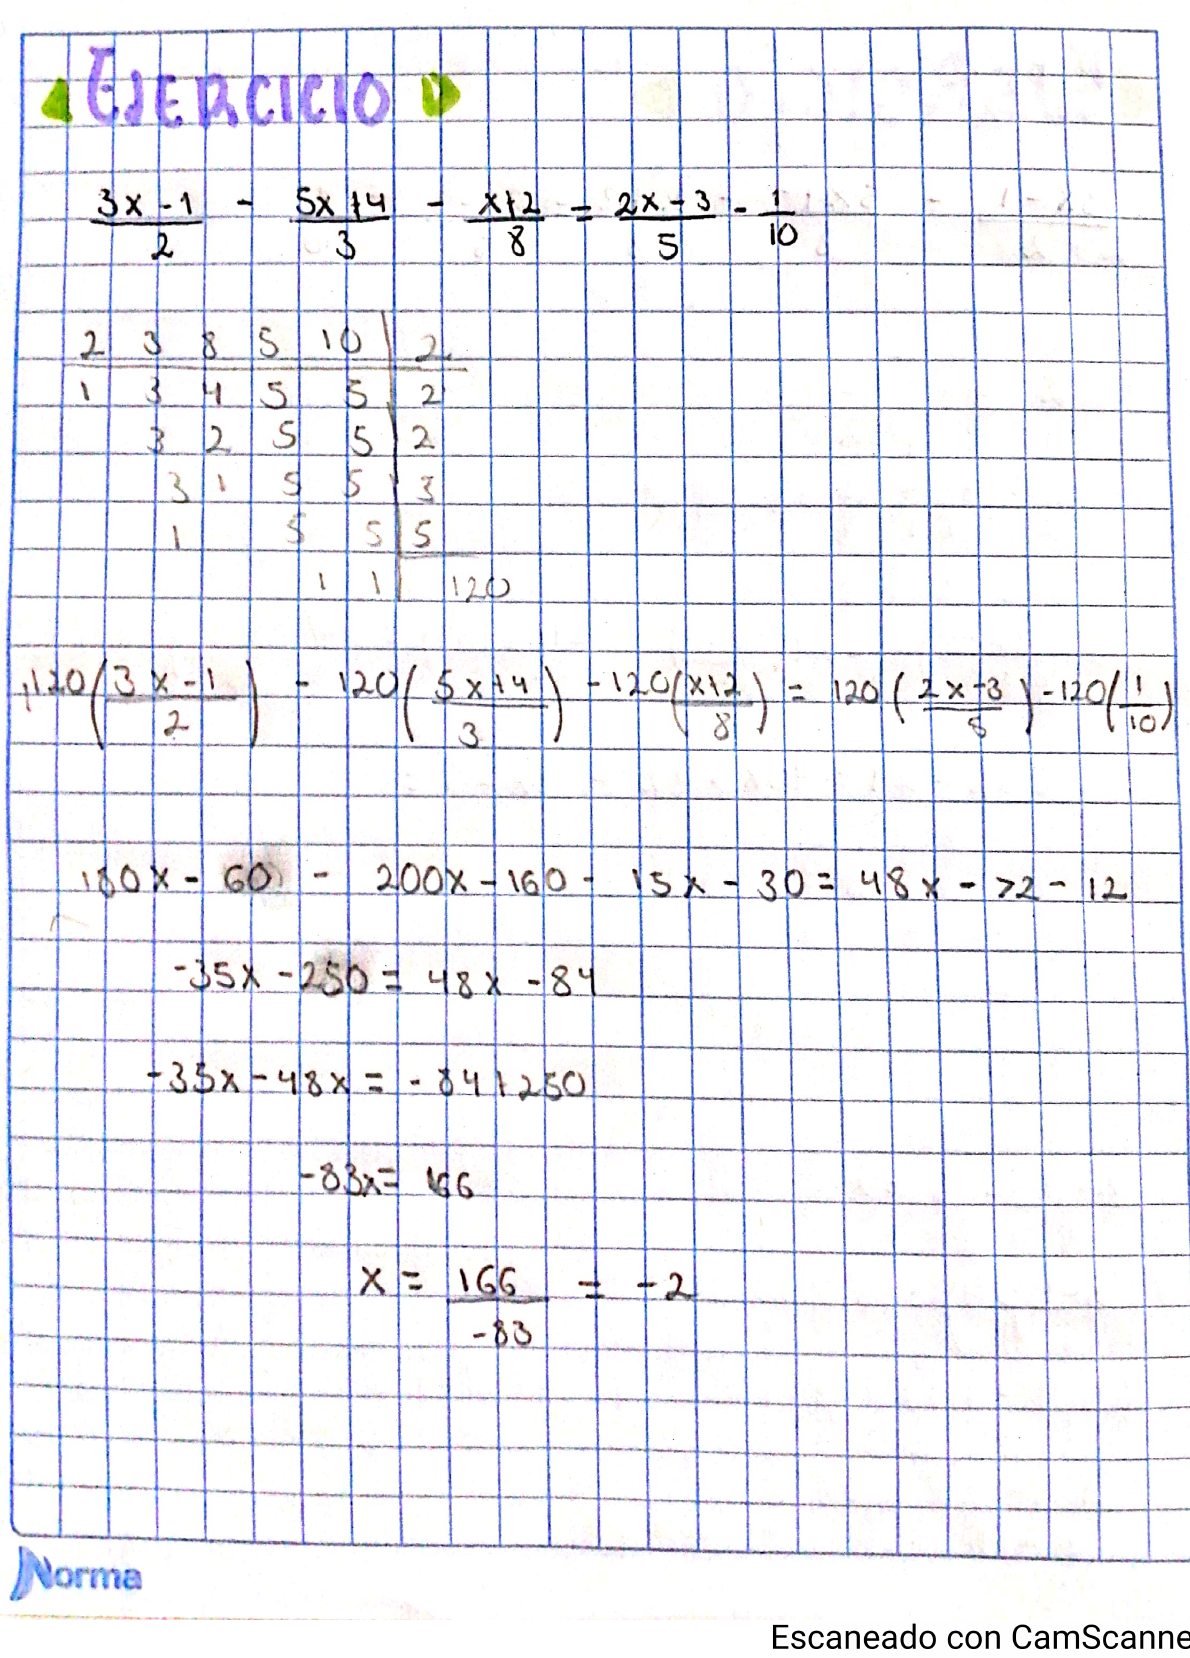 EJERCICIO
3x-1/2 - 5x+4/3 - x+2/8 = 2x-3/5 - 1/10
2 3 8 5 10 | 2
1 3 4 5 5 | 2
3 2 5 5 | 2
3 1 5 5 | 3
1 5 5 | 5
1 1 | 120
120(3x-1/2) - 120(5x+4/3) - 120(x+2/8) = 120(2x-3/5) - 120(1/10)
180x - 60 - 200x - 160 - 15x - 30 = 48x - 72 - 12
-35x - 250 = 48x - 84
-35x - 48x = -84+250
-83x = 166
x = 166/-83 = -2
Norma
Escaneado con CamScanne